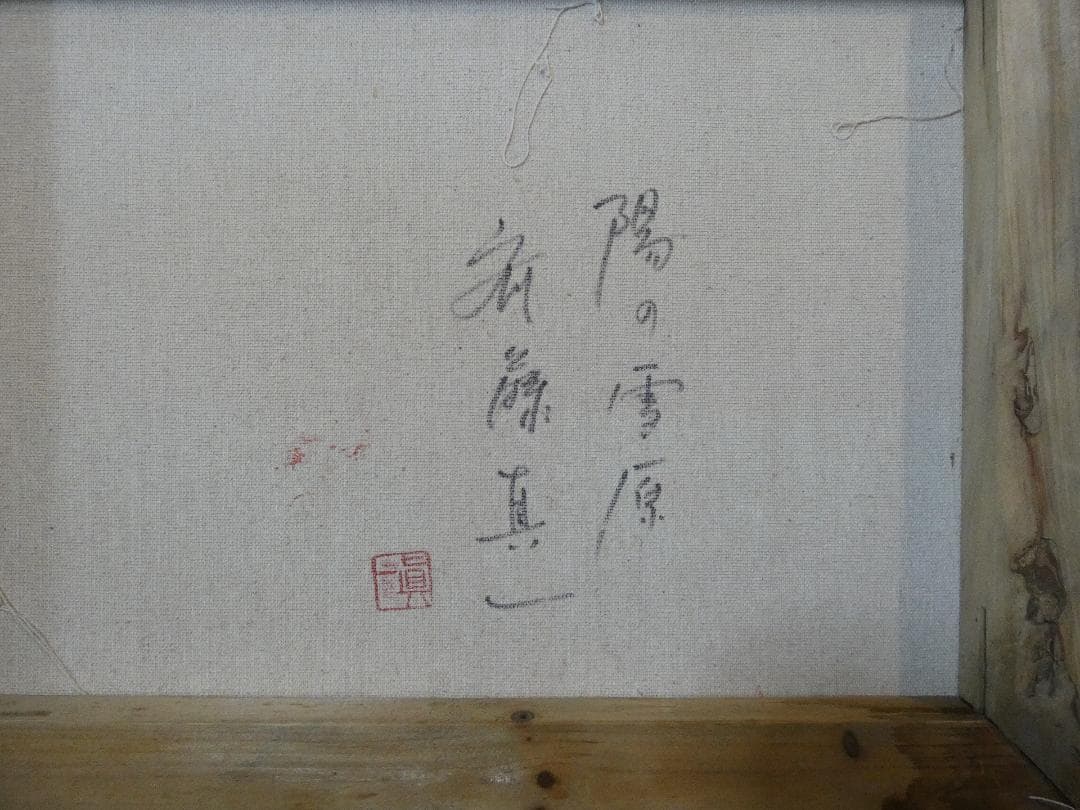 陽の雪原
斎藤真一